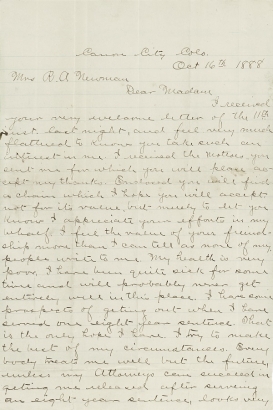 Canon City Colo.
Oct 16th 1888
Mrs R. A Newman
Dear Madam
I received
your very welcome letter of the 11th
inst last night, and feel very much
flattered to know you take such an
interest in me. I received the Mottoes you
sent me for which you will please ac-
cept my thanks. Enclosed you will find
a chain which I hope you will accept
not for its value, but merely to let you
know I appreciate your efforts in my
behalf. I feel the value of your friend-
ship more than I can tell as none of my
people write to me. My health is very
poor. I have been quite sick for some
time and will probably never get
entirely well in this place. I have some
prospects of getting out when I have
served one eight year sentence. That
is the only hope I have. I try to make
the best of my circumstances. Every
body treats me well but the future,
unless my Attorneys can succeed in
getting me released after serving
an eight year sentence, looks very